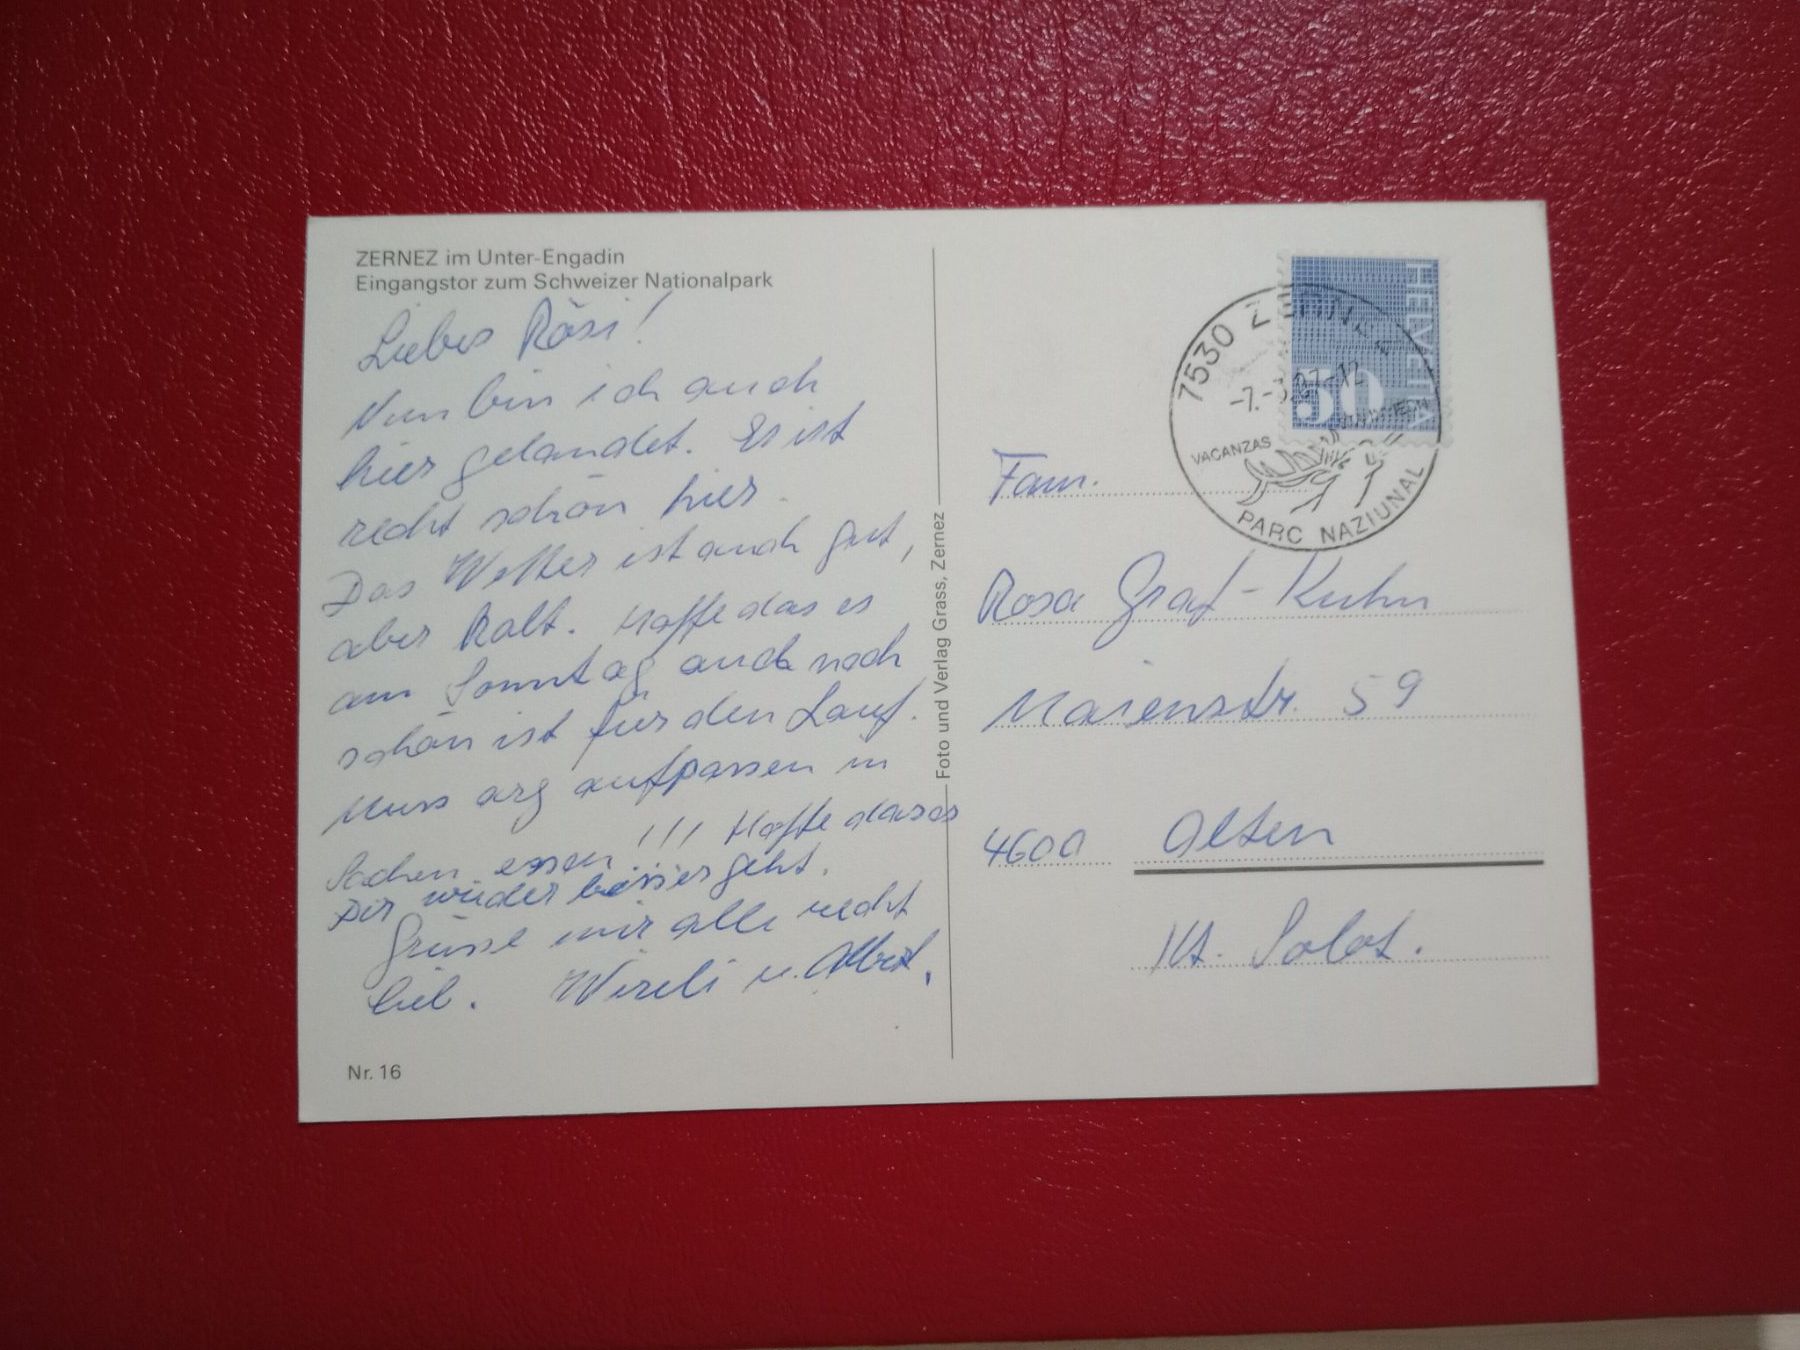 ZERNEZ im Unter-Engadin
Eingangstor zum Schweizer Nationalpark
Liebes Rösi!
Nun bin ich auch
hier gelandet. Es ist
recht schön hier.
Das Wetter ist auch gut,
aber kalt. Hoffe das es
am Sonntag auch noch
schön ist für den Lauf.
Muss arg aufpassen m
Sachen essen!!! Hoffe dass es
Dir wieder besser geht.
Grüsse mir alle recht
lieb. Vreeli u. Albert.
Nr. 16
Foto und Verlag Grass, Zernez
HELVETIA
50
7530 ZERNEZ
-7.-
-12
VACANZAS
PARC NAZIUNAL
Fam.
Rosa Graf-Kuhn
Maienstr. 59
4600 Olten
Kt. Solot.